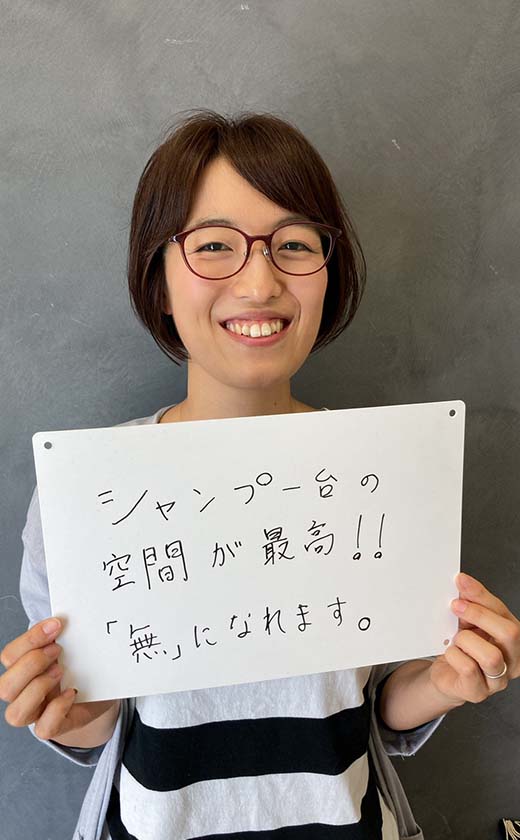 シャンプー台の
空間が最高!!
「無」になれます。